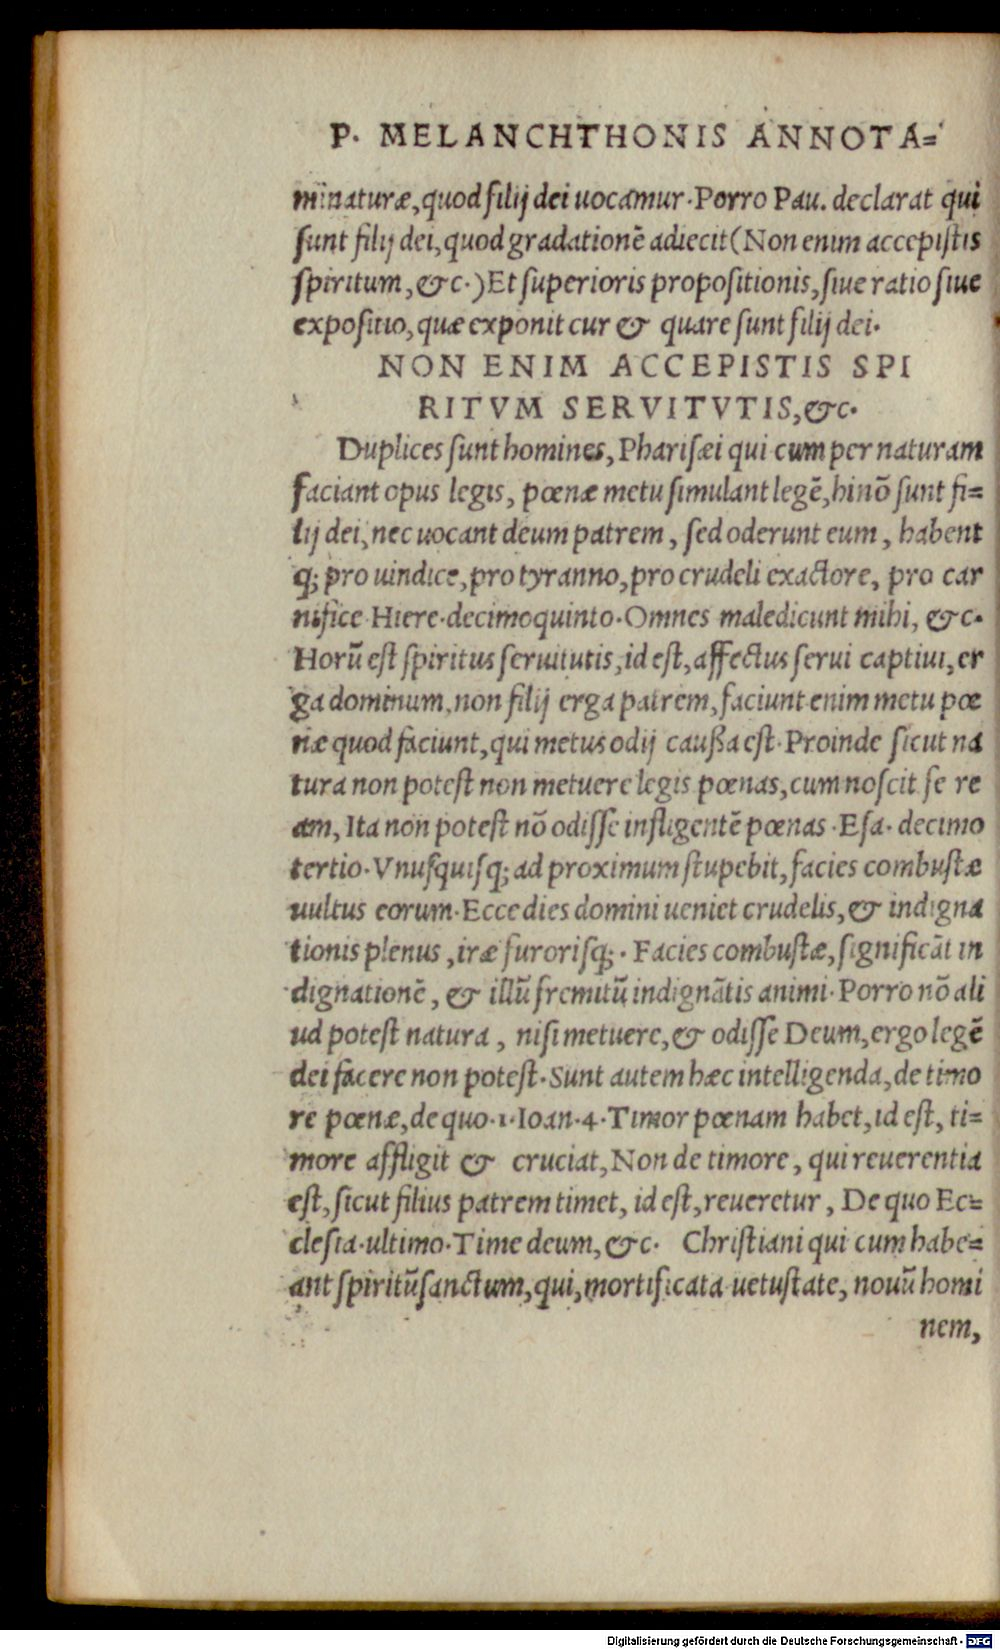 P. MELANCHTHONIS ANNOTA=
minaturæ, quod filij dei uocamur. Porro Pau. declarat qui
sunt filij dei, quod gradationē adiecit (Non enim accepistis
spiritum, &c.) Et superioris propositionis, siue ratio siue
expositio, quæ exponit cur & quare sunt filij dei.
NON ENIM ACCEPISTIS SPI
RITVM SERVITVTIS, &c.
Duplices sunt homines, Pharisæi qui cum per naturam
faciant opus legis, pœnæ metu simulant legē, hi nō sunt fi=
lij dei, nec uocant deum patrem, sed oderunt eum, habent
q; pro uindice, pro tyranno, pro crudeli exactore, pro car
nifice Hiere. decimoquinto. Omnes maledicunt mihi, &c.
Horū est spiritus seruitutis, id est, affectus serui captiui, er
ga dominum, non filij erga patrem, faciunt enim metu pœ
næ quod faciunt, qui metus odij caußa est. Proinde sicut na
tura non potest non metuere legis pœnas, cum noscit se re
am, Ita non potest nō odisse infligentē pœnas. Esa. decimo
tertio. Vnusquisq; ad proximum stupebit, facies combustæ
uultus eorum. Ecce dies domini ueniet crudelis, & indigna
tionis plenus, iræ furorisq;. Facies combustæ, significāt in
dignationē, & illū fremitū indignātis animi. Porro nō ali
ud potest natura, nisi metuere, & odisse Deum, ergo legē
dei facere non potest. Sunt autem hæc intelligenda, de timo
re pœnæ, de quo. 1. Ioan. 4. Timor pœnam habet, id est, ti=
more affligit & cruciat, Non de timore, qui reuerentia
est, sicut filius patrem timet, id est, reueretur, De quo Ec=
clesia. ultimo. Time deum, &c. Christiani qui cum habe=
ant spiritūsanctum, qui, mortificata uetustate, nouū homi
nem,
Digitalisierung gefördert durch die Deutsche Forschungsgemeinschaft - DFG